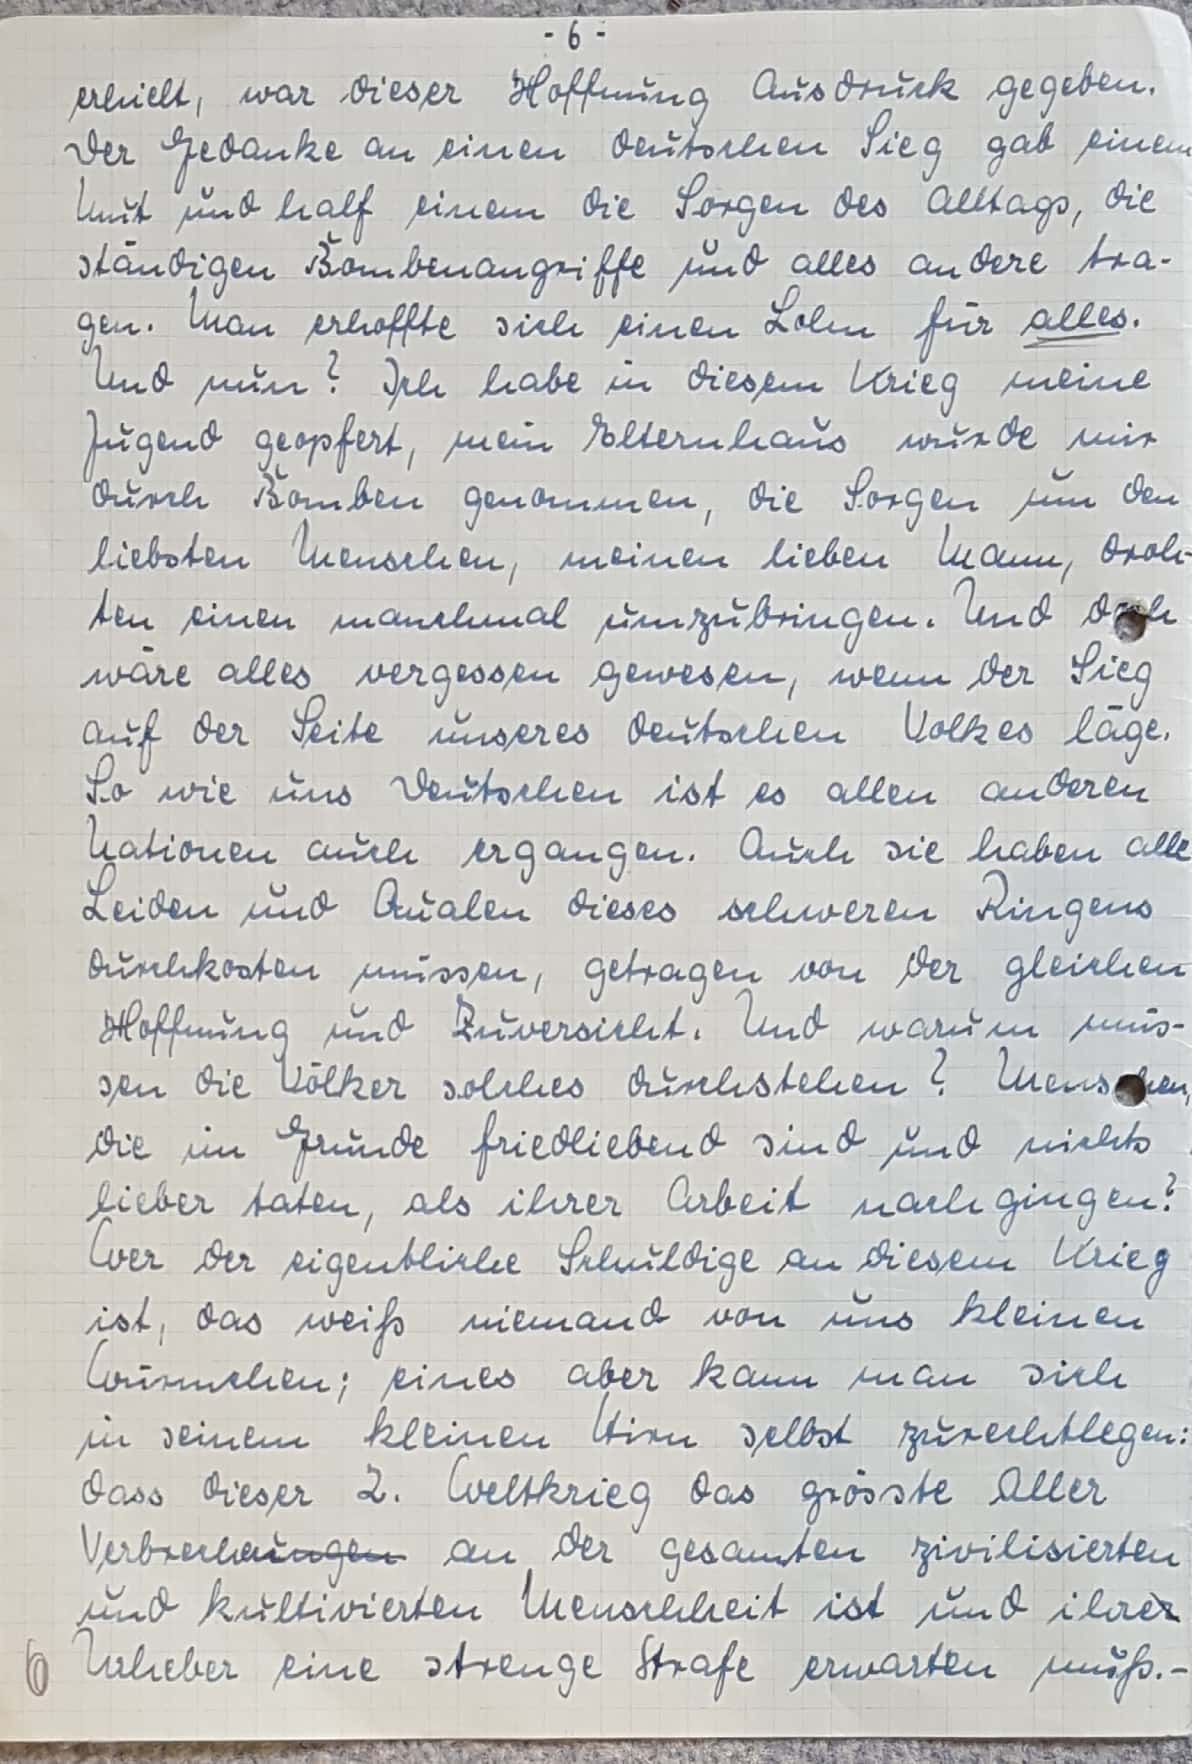 - 6 -
erhielt, war dieser Hoffnung Ausdruck gegeben.
Der Gedanke an einen deutschen Sieg gab einem
Mut und half einem die Sorgen des Alltags, die
ständigen Bombenangriffe und alles andere tra-
gen. Man erhoffte sich einen Lohn für alles.
Und nun? Ich habe in diesem Krieg meine
Jugend geopfert, mein Elternhaus wurde mir
durch Bomben genommen, die Sorgen um den
liebsten Menschen, meinen lieben Mann, droh-
ten einen manchmal umzubringen. Und doch
wäre alles vergessen gewesen, wenn der Sieg
auf der Seite unseres deutschen Volkes läge.
So wie uns Deutschen ist es allen anderen
Nationen auch ergangen. Auch sie haben alle
Leiden und Qualen dieses schweren Ringens
durchkosten müssen, getragen von der gleichen
Hoffnung und Zuversicht. Und warum müs-
sen die Völker solches durchstehen? Menschen,
die im Grunde friedliebend sind und nichts
lieber taten, als ihrer Arbeit nachgingen?
Wer der eigentliche Schuldige an diesem Krieg
ist, das weiß niemand von uns kleinen
Würmchen; eines aber kann man sich
in seinem kleinen Hirn selbst zurechtlegen:
dass dieser 2. Weltkrieg das grösste aller
Verbrechungen an der gesamten zivilisierten
und kultivierten Menschheit ist und ihrer
6 Urheber eine strenge Strafe erwarten muß.-